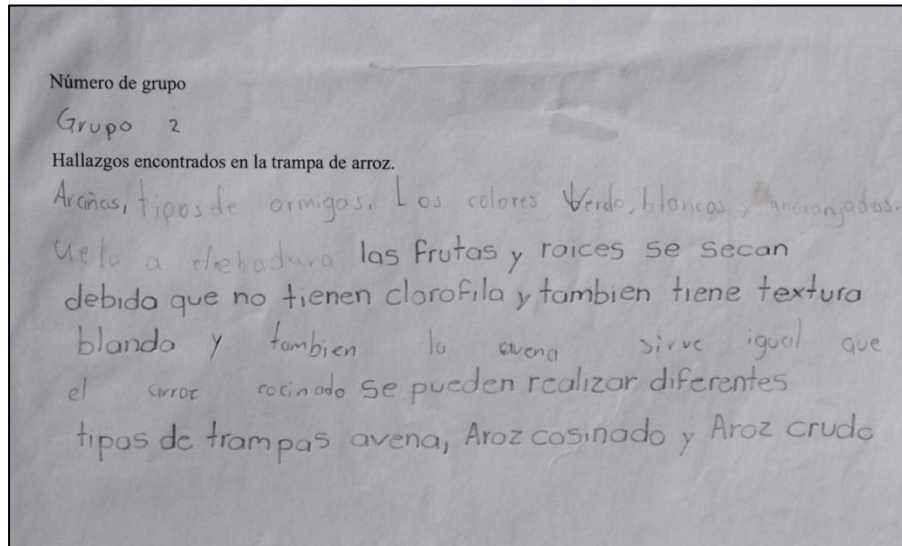 Número de grupo
Grupo 2
Hallazgos encontrados en la trampa de arroz.
Arañas, tipos de ormigas. Los colores Verde, blancos y anaranjadas.
Uelo a clebadura las frutas y raices se secan
debida que no tienen clorofila y tambien tiene textura
blanda y tambien la avena sirve igual que
el arroz cocinado se pueden realizar diferentes
tipos de trampas avena, Aroz cosinado y Aroz crudo